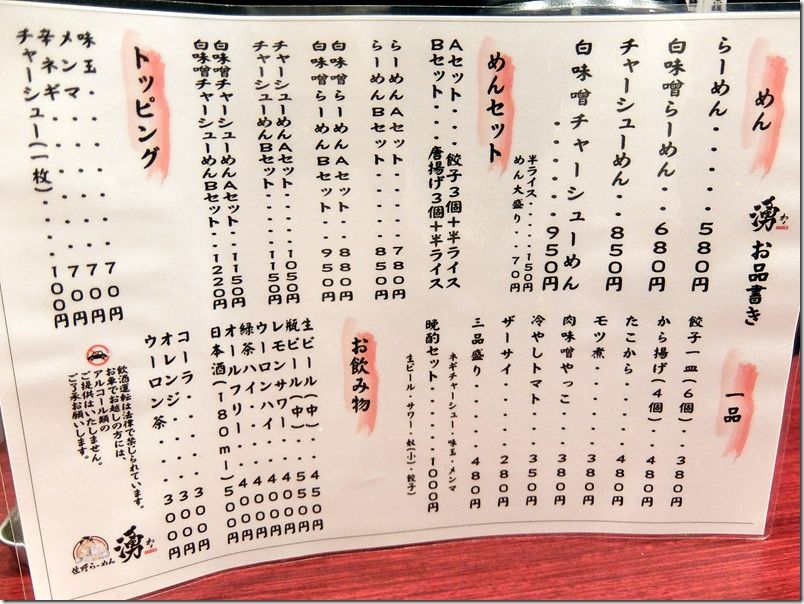 湧 わく お品書き
めん
らーめん・・・・・・580円
白味噌らーめん・・680円
チャーシューめん・・850円
白味噌チャーシューめん
・・・・・・950円
半ライス・・・・・150円
めん大盛り・・・・70円
めんセット
Aセット・・・餃子3個+半ライス
Bセット・・・唐揚げ3個+半ライス
らーめんAセット・・・・・780円
らーめんBセット・・・・・850円
白味噌らーめんAセット・・・880円
白味噌らーめんBセット・・・950円
チャーシューめんAセット・・1050円
チャーシューめんBセット・・1150円
白味噌チャーシューめんAセット・・1150円
白味噌チャーシューめんBセット・・1220円
トッピング
味玉・・・・・・・・70円
メンマ・・・・・・・70円
辛ネギ・・・・・・・70円
チャーシュー(一枚)・・・100円
一品
餃子一皿(6個)・・・380円
から揚げ(4個)・・・480円
たこから・・・・・・480円
モツ煮・・・・・・・380円
肉味噌やっこ・・・・380円
冷やしトマト・・・・350円
ザーサイ・・・・・・280円
三品盛り・・・・・・480円
ネギチャーシュー・味玉・メンマ
晩酌セット・・・・・1000円
生ビール・サワー・奴(小)・餃子)
お飲み物
生ビール(中)・・・450円
瓶ビール(中)・・・550円
レモンサワー・・・・400円
ウーロンハイ・・・・400円
緑茶ハイ・・・・・・400円
オールフリー・・・・400円
日本酒(180ml)・500円
コーラ・・・・・・300円
オレンジ・・・・・300円
ウーロン茶・・・・300円
飲酒運転は法律で禁じられています。
お車でお越しの方には、
アルコール類の
ご提供はいたしません。
ご了承お願いします。
佐野らーめん 湧 わく